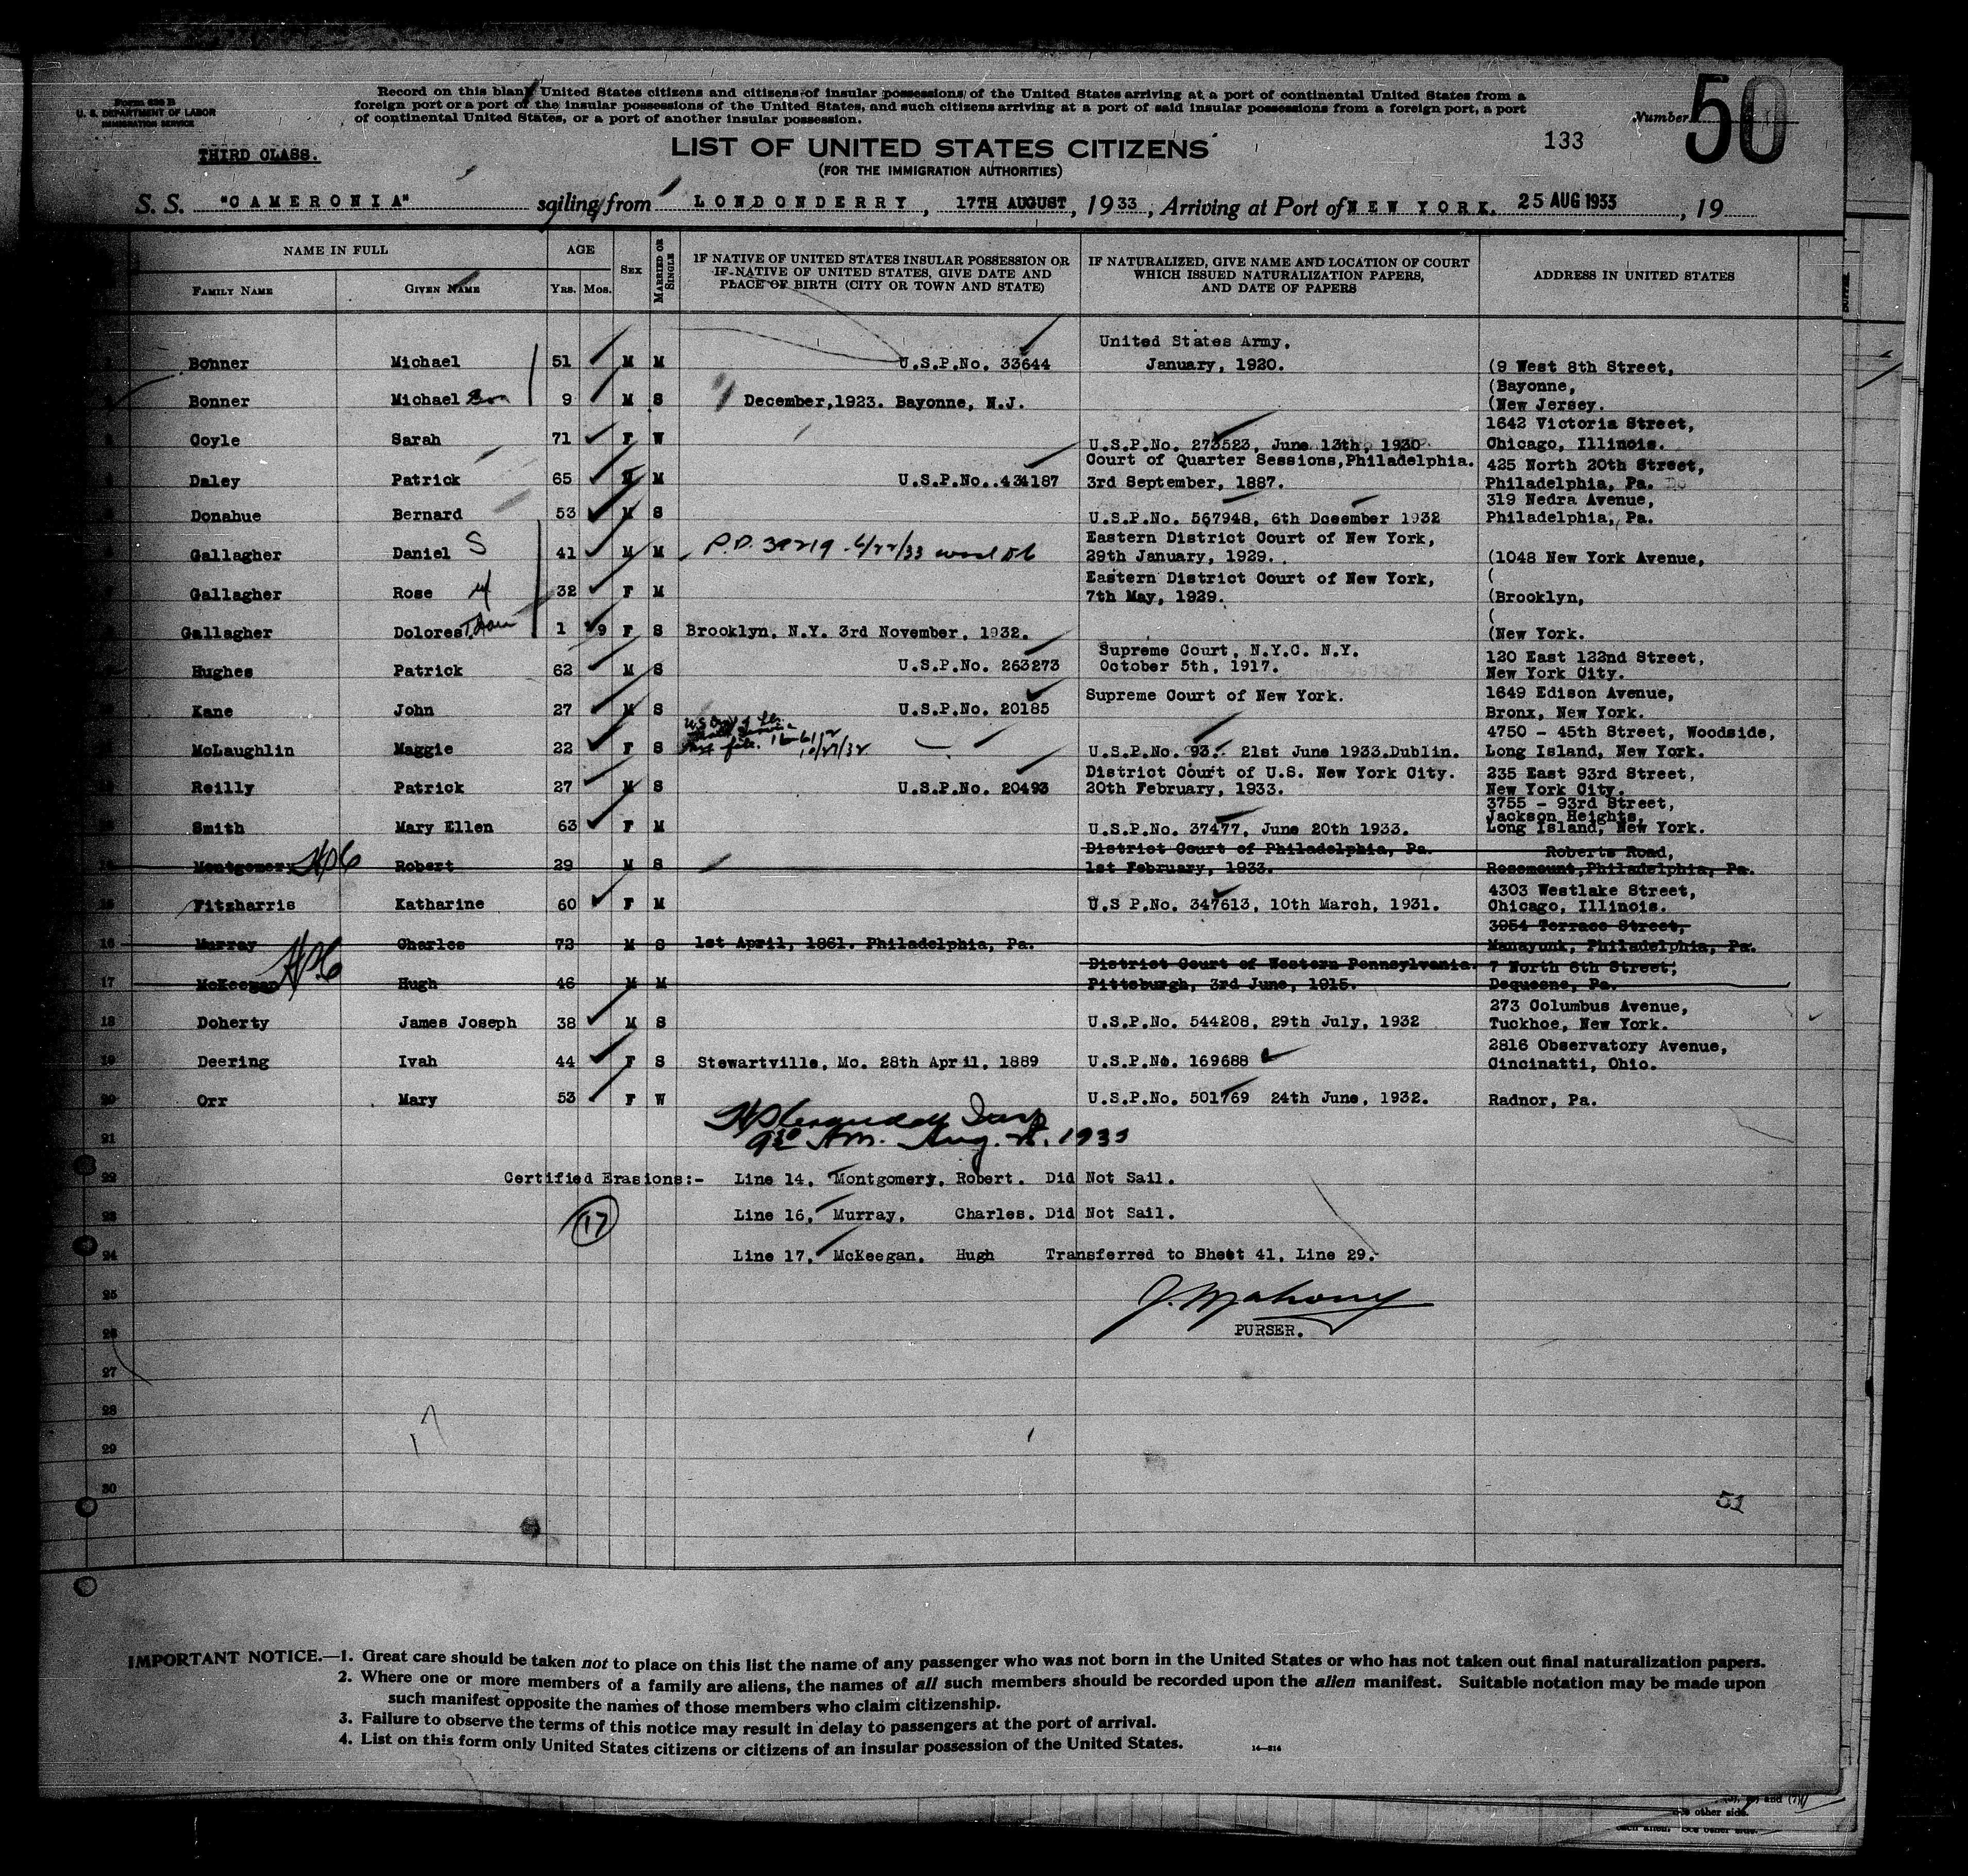 Form 636 B
U. S. DEPARTMENT OF LABOR
IMMIGRATION SERVICE
Record on this blank United States citizens and citizens of insular possessions of the United States arriving at a port of continental United States from a
foreign port or a port of the insular possessions of the United States, and such citizens arriving at a port of said insular possessions from a foreign port, a port
of continental United States, or a port of another insular possession.
Number 50
133
THIRD CLASS.
LIST OF UNITED STATES CITIZENS
(FOR THE IMMIGRATION AUTHORITIES)
S. S. "CAMERONIA" sailing from LONDONDERRY, 17TH AUGUST, 1933, Arriving at Port of NEW YORK. 25 AUG 1933, 19
NAME IN FULL
FAMILY NAME GIVEN NAME
AGE
YRS. MOS.
SEX
MARRIED OR SINGLE
IF NATIVE OF UNITED STATES INSULAR POSSESSION OR
IF NATIVE OF UNITED STATES, GIVE DATE AND
PLACE OF BIRTH (CITY OR TOWN AND STATE)
IF NATURALIZED, GIVE NAME AND LOCATION OF COURT
WHICH ISSUED NATURALIZATION PAPERS,
AND DATE OF PAPERS
ADDRESS IN UNITED STATES
United States Army.
Bonner Michael 51 M M U.S.P.No. 33644 January, 1920. (9 West 8th Street,
(Bayonne,
Bonner Michael Son 9 M S December,1923. Bayonne, N.J. (New Jersey.
1642 Victoria Street,
Coyle Sarah 71 F W U.S.P.No. 273523, June 13th, 1930 Chicago, Illinois.
Court of Quarter Sessions,Philadelphia. 425 North 20th Street,
Daley Patrick 65 M M U.S.P.No. 434187 3rd September, 1887. Philadelphia, Pa.
319 Nedra Avenue,
Donahue Bernard 53 M S U.S.P.No. 567948, 6th December 1932 Philadelphia, Pa.
Eastern District Court of New York,
Gallagher Daniel S 41 M M P.P. 39219 - 6/22/33 29th January, 1929. (1048 New York Avenue,
Eastern District Court of New York, (
Gallagher Rose 32 F M 7th May, 1929. (Brooklyn,
(
Gallagher Dolores 1 9 F S Brooklyn, N.Y. 3rd November, 1932. (New York.
Supreme Court, N.Y.C. N.Y. 120 East 122nd Street,
Hughes Patrick 62 M S U.S.P.No. 263273 October 5th, 1917. New York City.
Supreme Court of New York. 1649 Edison Avenue,
Kane John 27 M S U.S.P.No. 20185 Bronx, New York.
4750 - 45th Street, Woodside,
McLaughlin Maggie 22 F S 10/27/32 U.S.P.No. 93. 21st June 1933.Dublin. Long Island, New York.
District Court of U.S. New York City. 235 East 93rd Street,
Reilly Patrick 27 M S U.S.P.No. 20493 20th February, 1933. New York City.
3755 - 93rd Street,
Jackson Heights,
Smith Mary Ellen 63 F M U.S.P.No. 37477, June 20th 1933. Long Island, New York.
District Court of Philadelphia, Pa. Roberts Road,
14 Montgomery Robert 29 M S 1st February, 1933. Rosemount,Philadelphia, Pa.
4303 Westlake Street,
15 Fitzharris Katharine 60 F M U.S P.No. 347613, 10th March, 1931. Chicago, Illinois.
3954 Terrace Street,
16 Murray Charles 72 M S 1st April, 1861. Philadelphia, Pa. Manayunk, Philadelphia, Pa.
District Court of Western Pennsylvania. 7 North 6th Street,
17 McKeegan Hugh 46 M M Pittsburgh, 3rd June, 1915. Dequesne, Pa.
273 Columbus Avenue,
18 Doherty James Joseph 38 M S U.S.P.No. 544208, 29th July, 1932 Tuckhoe, New York.
2816 Observatory Avenue,
19 Deering Ivah 44 F S Stewartville, Mo. 28th April, 1889 U.S.P.No. 169688 Cincinatti, Ohio.
20 Orr Mary 53 F W U.S.P.No. 501769 24th June, 1932. Radnor, Pa.
21 9 30 A.M. Aug. 1933
22 Certified Erasions:- Line 14, Montgomery, Robert. Did Not Sail.
23 17 Line 16, Murray, Charles. Did Not Sail.
24 Line 17, McKeegan, Hugh Transferred to Sheet 41, Line 29.
25 J. Mahony
26 PURSER.
27
28
17
29
30
51
IMPORTANT NOTICE.—1. Great care should be taken not to place on this list the name of any passenger who was not born in the United States or who has not taken out final naturalization papers.
2. Where one or more members of a family are aliens, the names of all such members should be recorded upon the alien manifest. Suitable notation may be made upon
such manifest opposite the names of those members who claim citizenship.
3. Failure to observe the terms of this notice may result in delay to passengers at the port of arrival.
4. List on this form only United States citizens or citizens of an insular possession of the United States.
14—814